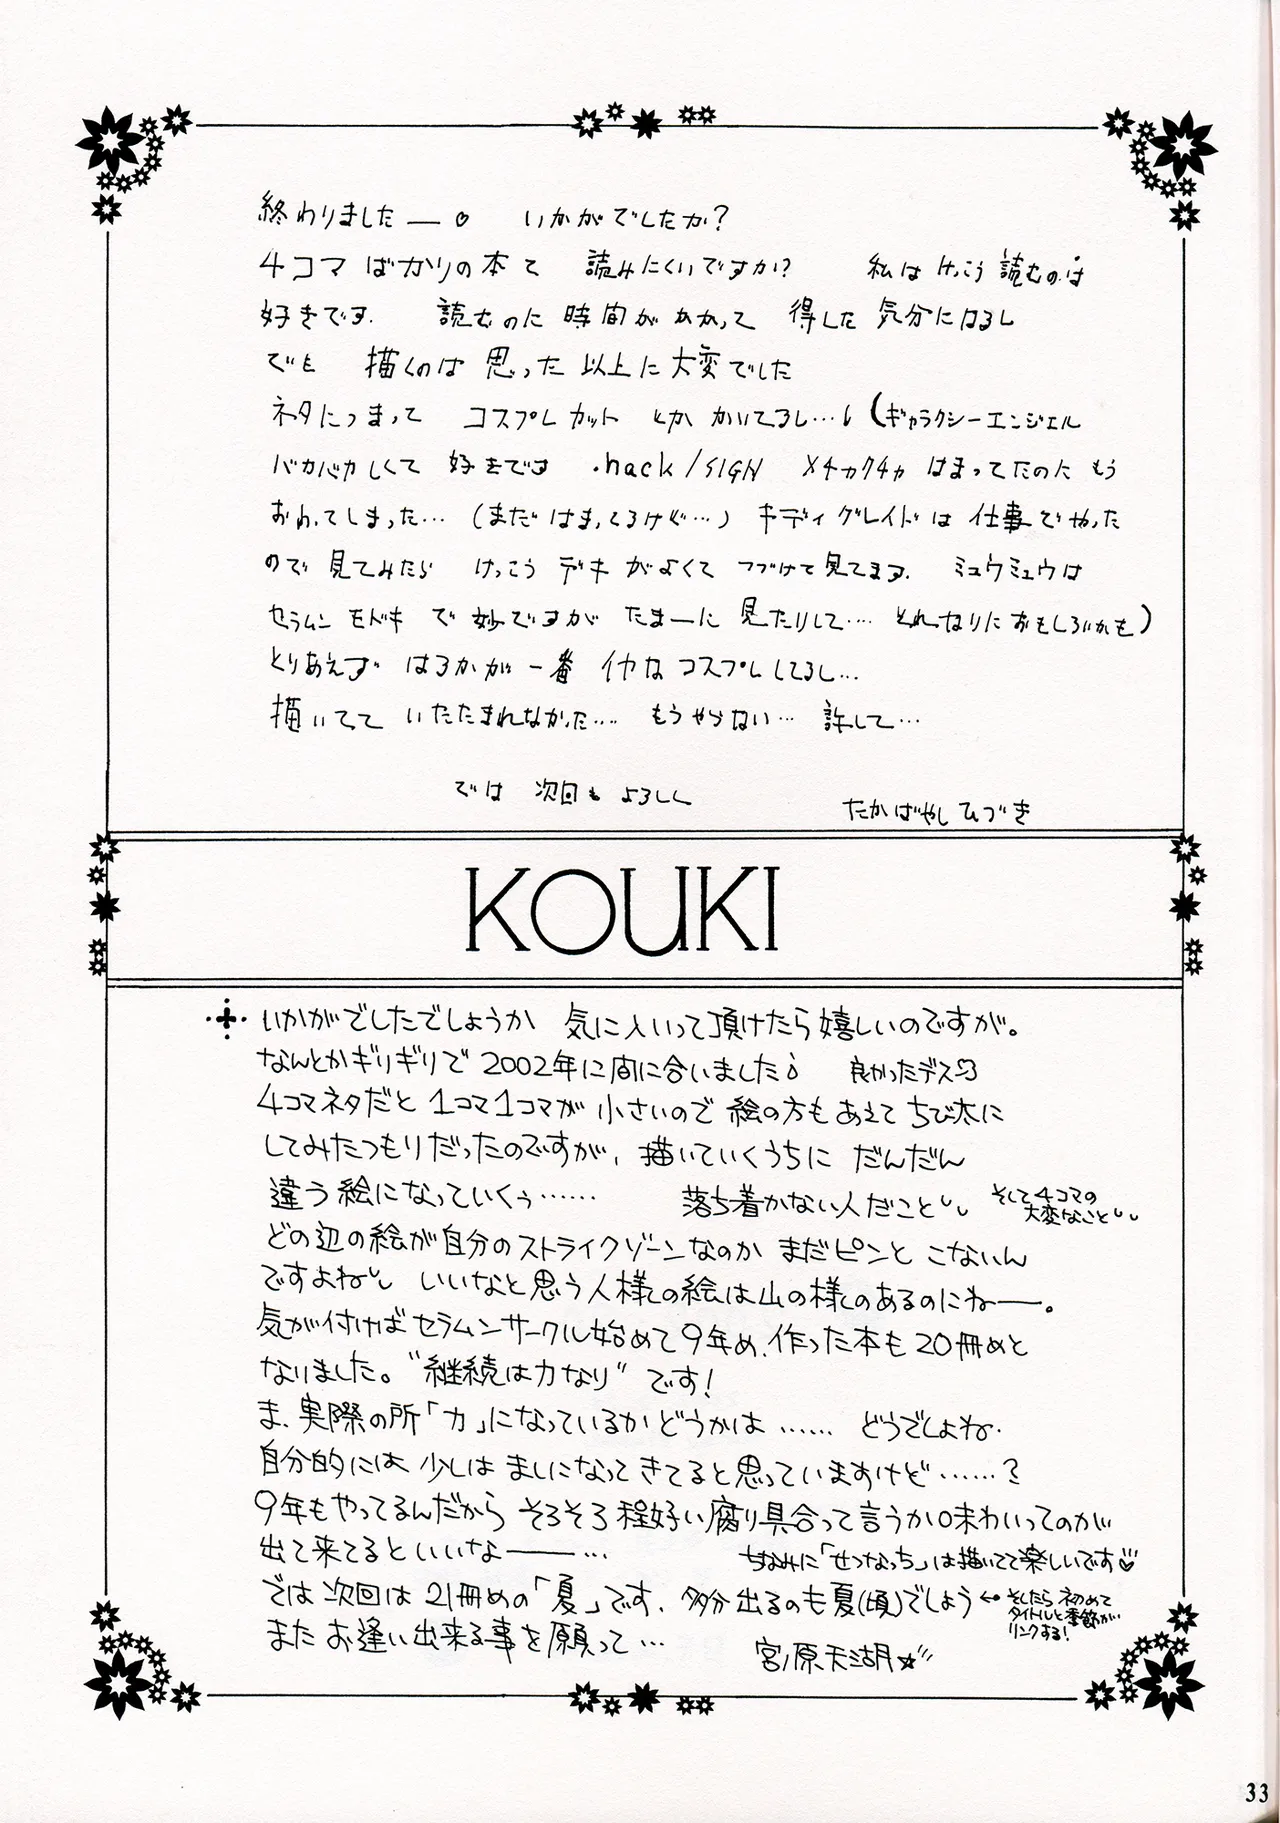 終わりました ― ♡ いかがでしたか?
4コマ ばかりの本て 読みにくいですか? 私は けっこう 読むのは
好きです. 読むのに 時間が かかって 得した 気分になるし
でも 描くのは 思った 以上に 大変でした
ネタにつまって コスプレカット とか かいてるし… (ギャラクシーエンジェル
バカバカしくて 好きです .hack/SIGN メチャクチャ はまってたのに もう
おわってしまった… (まだはまってるけど…) キディグレイドは 仕事でやった
ので 見てみたら けっこう デキ がよくて つづけて見てます. ミュウミュウは
セラムン モドキ で 妙ですが たまーに 見たりして…. それなりにおもしろいかも)
とりあえず はるかが 一番 イヤな コスプレしてるし…
描いてて いたたまれなかった…. もうやらない… 許して…
では 次回も よろしく
たかばやしひづき
KOUKI
いかがでしたでしょうか 気に入いって頂けたら嬉しいのですが。
なんとかギリギリで 2002年に間に合いました♪ 良かったデス♡
4コマネタだと 1コマ1コマが 小さいので 絵の方も あえて ちび太に
してみたつもりだったのですが、描いていくうちに だんだん
違う絵になっていくぅ…… 落ち着かない人だこと
そして4コマの
大変なこと
どの辺の絵が自分のストライクゾーンなのか まだピンと こないん
ですよね いいなと思う人様の絵は山の様のあるのにねー。
気が付けばセラムンサークル始めて9年め、作った本も20冊めと
なりました。"継続は力なり" です!
ま、実際の所「力」になっているかどうかは…… どうでしょね.
自分的には 少しは ましになって きてると思っていますけど……?
9年もやってるんだから そろそろ程好い腐り具合って言うか味わいってのが
出て来てるといいなーー… ちなみに「せつなっち」は描いてて楽しいです♡
では 次回は 21冊めの「夏」です. 多分 出るのも夏(頃)でしょう ←
そしたら 初めて
タイトルと季節が
リンクする!
また お逢い出来る事を願って…
宮原天湖☆
33